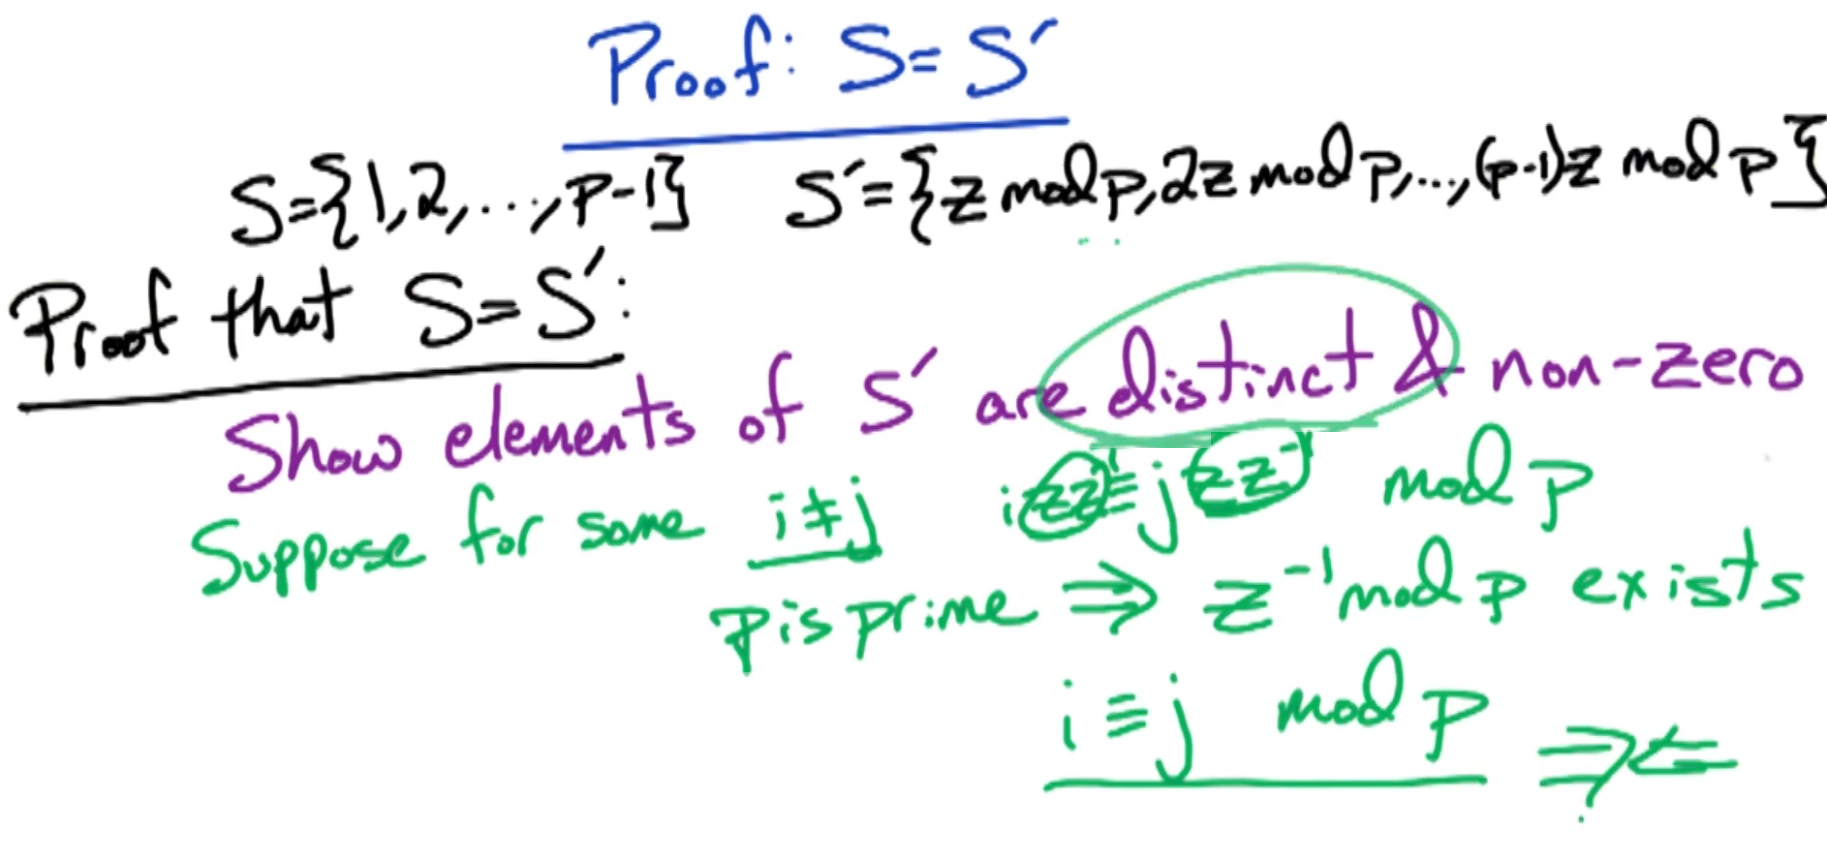 Proof: S = S′
S={1,2,...,p-1} S′={z mod p, 2z mod p,...,(p-1)z mod p}
Proof that S = S′:
Show elements of S′ are distinct & non-zero
Suppose for some i≠j izz⁻¹≡jzz⁻¹ mod p
p is prime ⇒ z⁻¹ mod p exists
i ≡ j mod p ⇒⇐